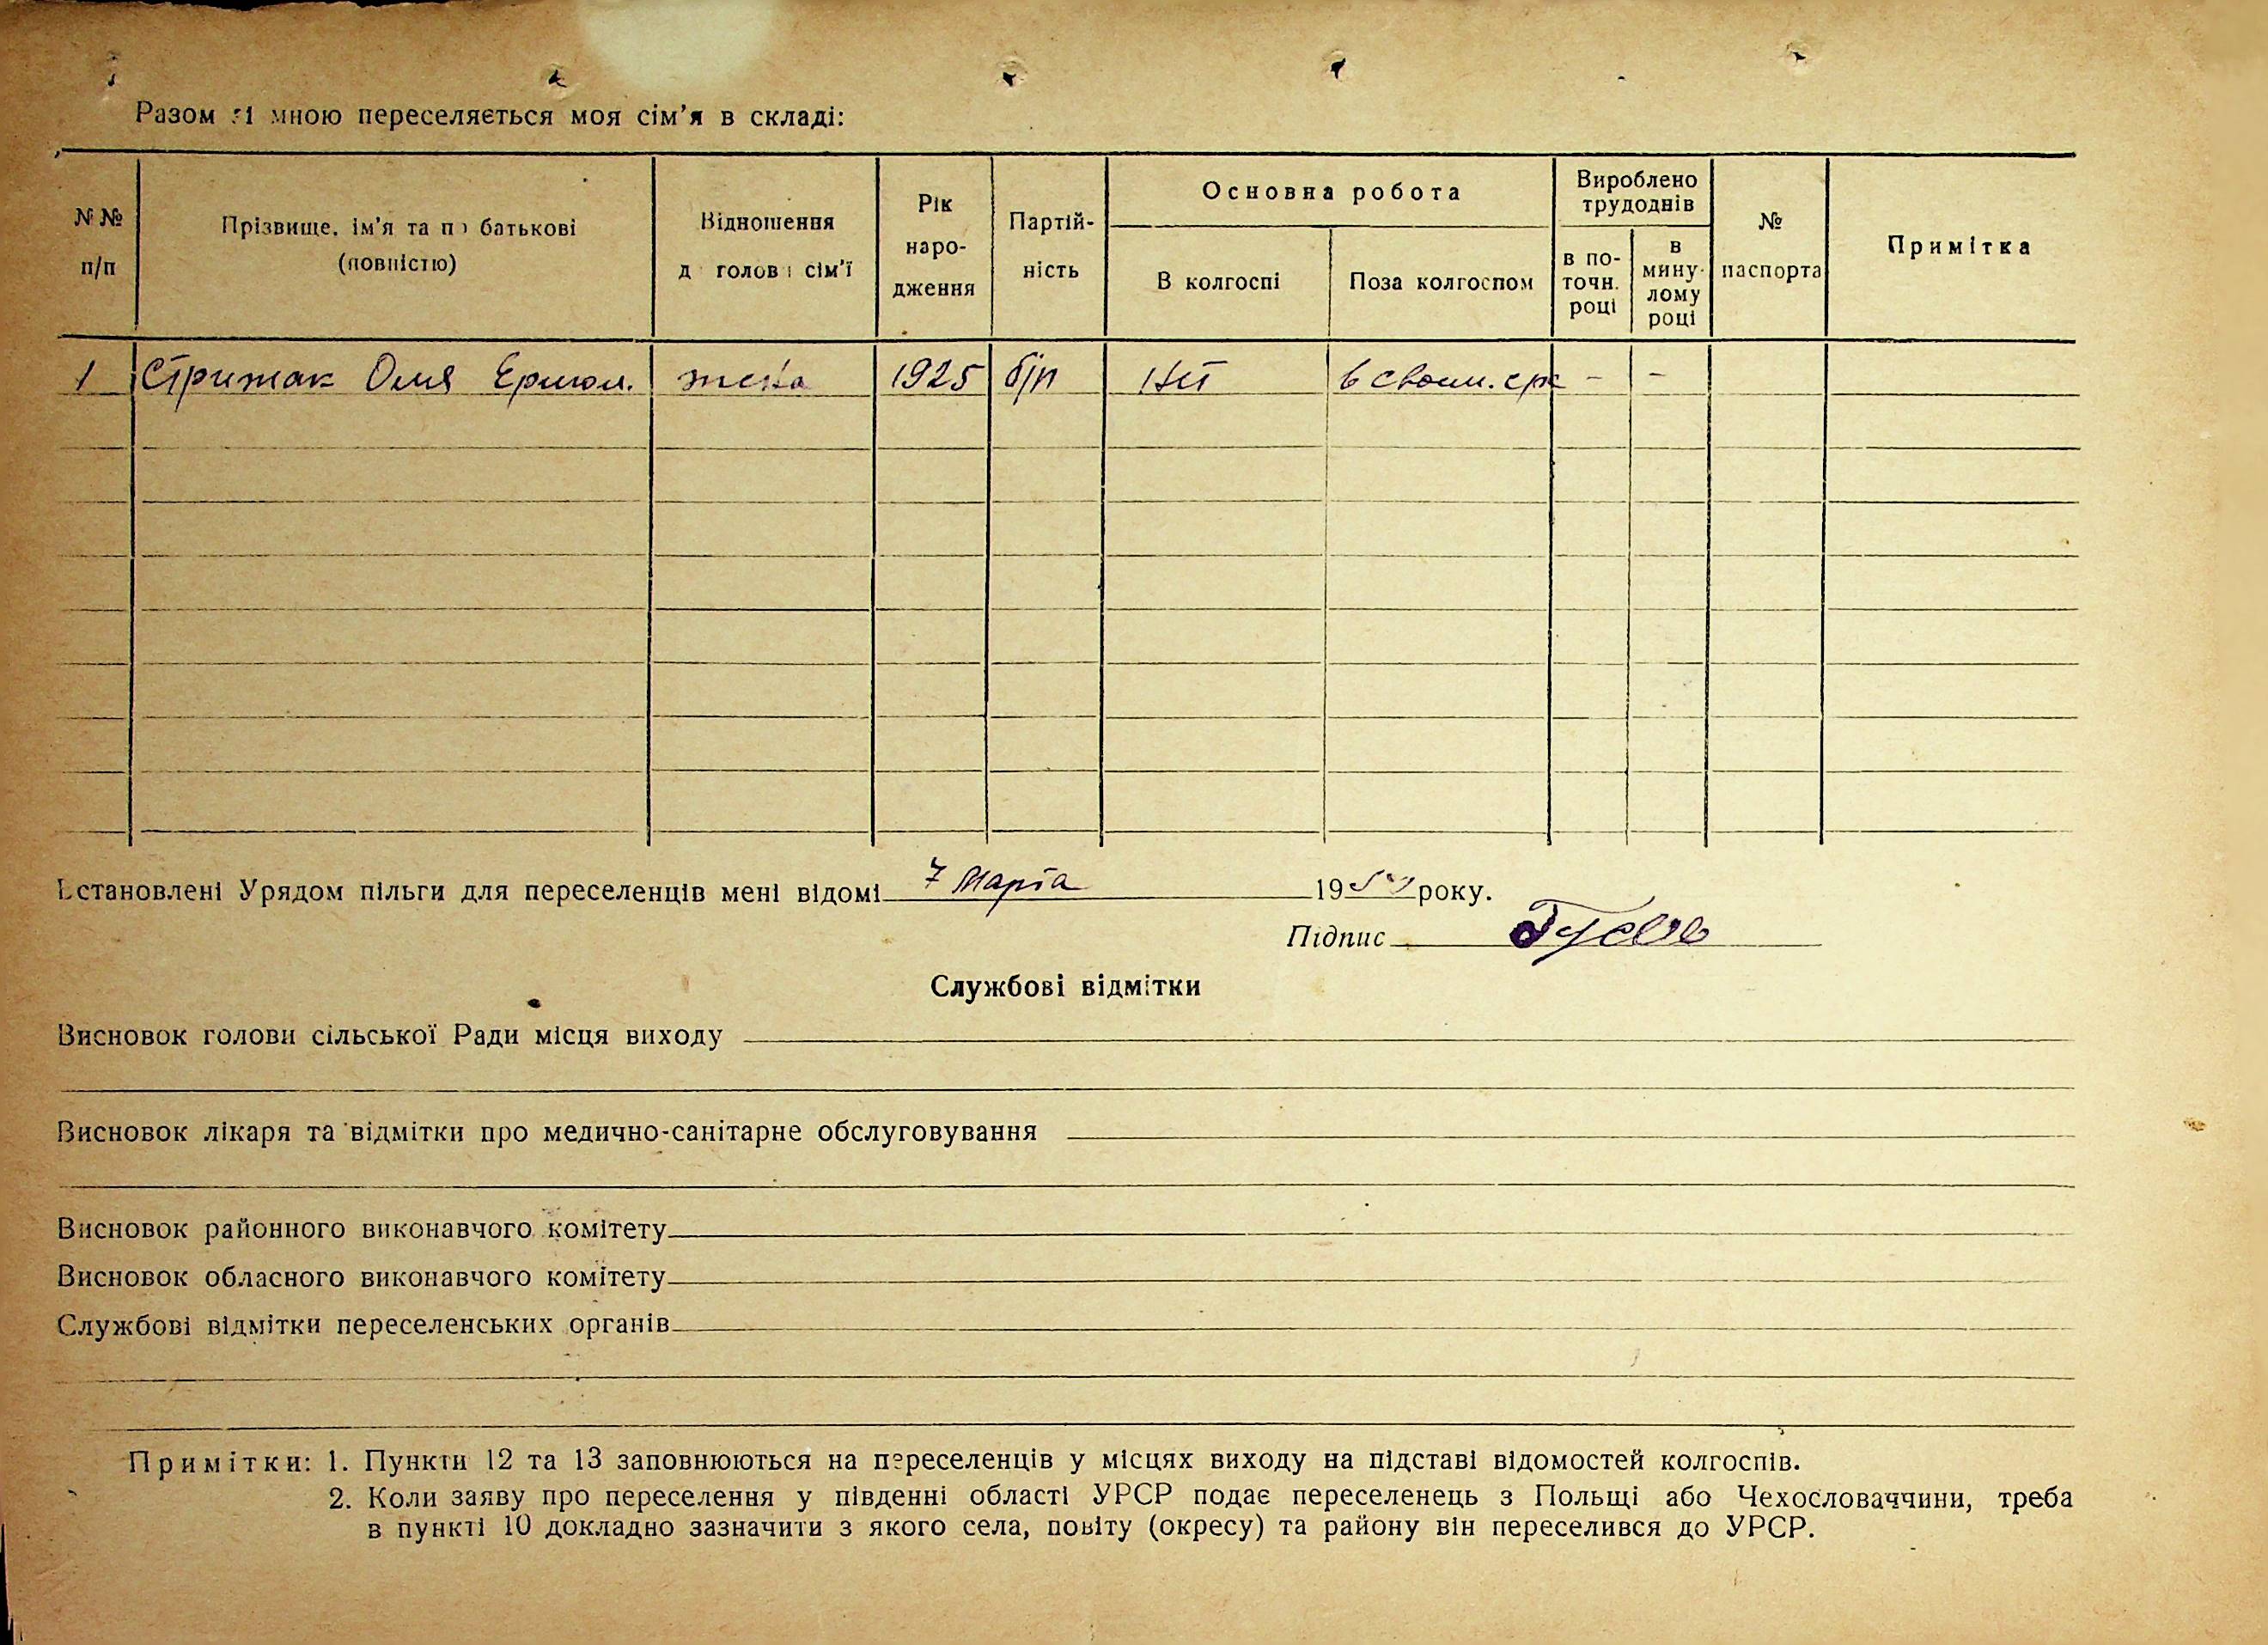 Разом зі мною переселяється моя сім'я в складі:
№№ п/п
Прізвище, ім'я та по батькові (повністю)
Відношення до голови сім'ї
Рік народження
Партійність
Основна робота
В колгоспі
Поза колгоспом
Вироблено трудоднів
в поточн. році
в минулому році
№ паспорта
Примітка
1 Стрижак Оля Ермол. жена 1925 б/п Нет в своем - -
Встановлені Урядом пільги для переселенців мені відомі 7 Марта 19 року.
Підпис
Службові відмітки
Висновок голови сільської Ради місця виходу
Висновок лікаря та відмітки про медично-санітарне обслуговування
Висновок районного виконавчого комітету
Висновок обласного виконавчого комітету
Службові відмітки переселенських органів
Примітки: 1. Пункти 12 та 13 заповнюються на переселенців у місцях виходу на підставі відомостей колгоспів.
2. Коли заяву про переселення у південні області УРСР подає переселенець з Польщі або Чехословаччини, треба
в пункті 10 докладно зазначити з якого села, повіту (окресу) та району він переселився до УРСР.